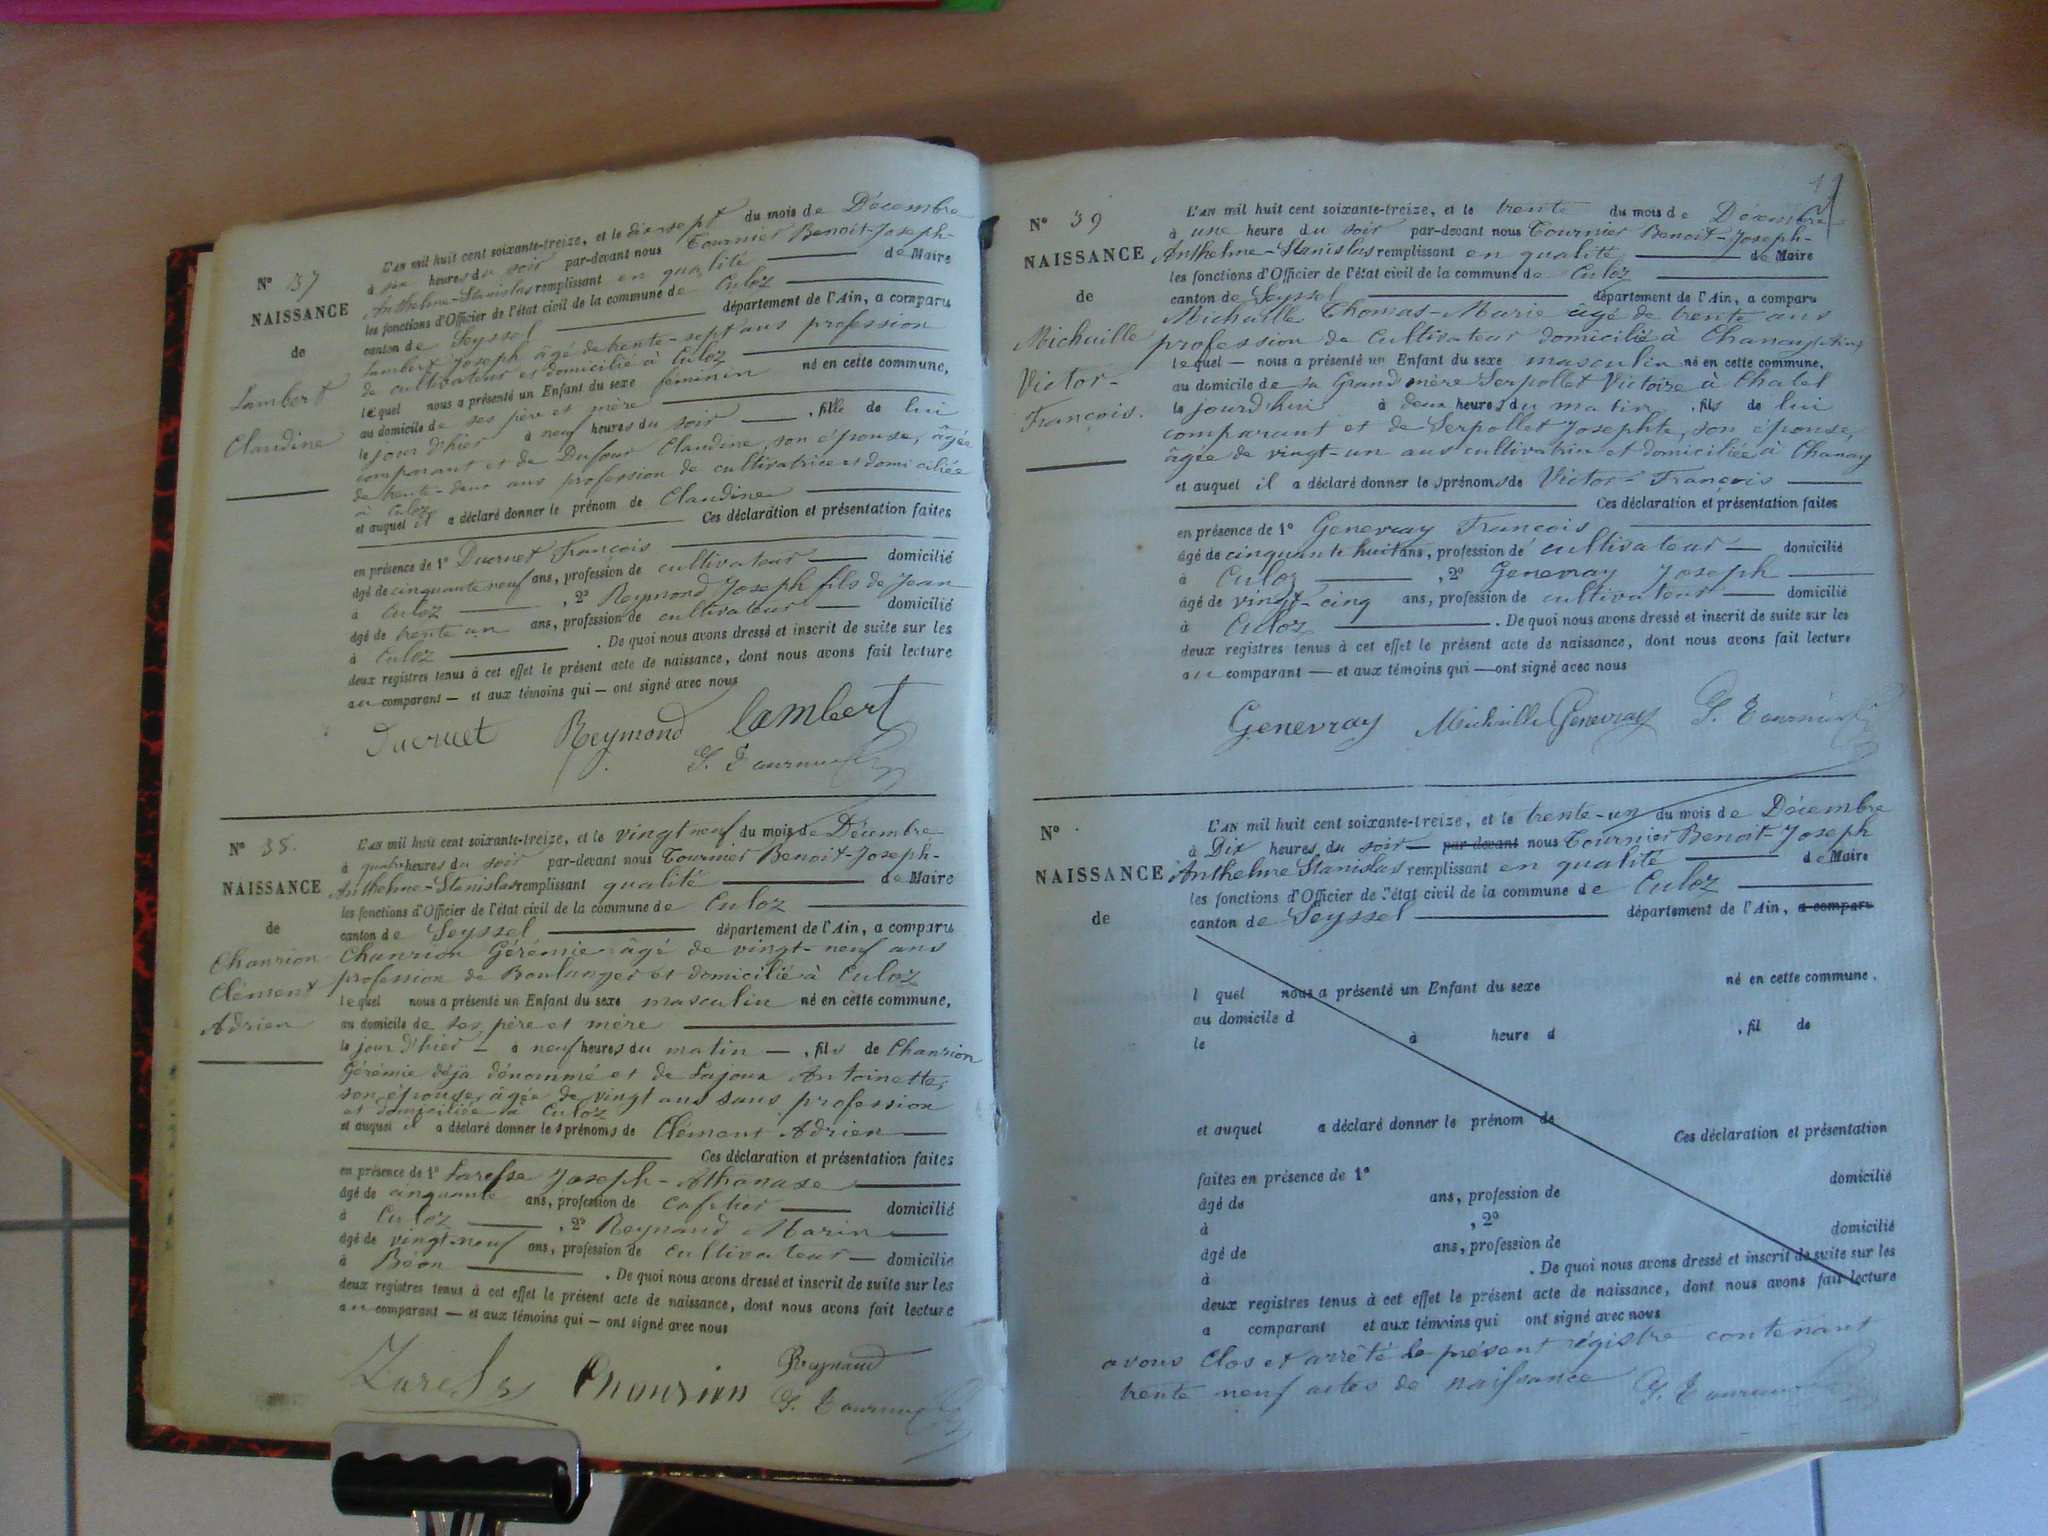 N° 37
NAISSANCE
de
Lambert
Claudine
L'AN mil huit cent soixante-treize, et le dix-sept du mois de Décembre
à six heures du soir par-devant nous Tournier Benoit-Joseph-
Anthelme-Stanislas remplissant en qualité de Maire
les fonctions d'Officier de l'état civil de la commune de Culoz
canton de Seyssel département de l'Ain, a comparu
Lambert Joseph âgé de trente-sept ans profession
de cultivateur et domicilié à Culoz
lequel nous a présenté un Enfant du sexe féminin né en cette commune,
au domicile de ses père et mère
le jour d'hier à neuf heures du soir, fille de lui
comparant et de Dufour Claudine, son épouse, âgée
de trente-deux ans profession de cultivatrice et domiciliée
à Culoz
et auquel il a déclaré donner le prénom de Claudine
Ces déclaration et présentation faites
en présence de 1° Ducruet François
âgé de cinquante neuf ans, profession de cultivateur domicilié
à Culoz, 2° Reymond Joseph fils de Jean
âgé de trente un ans, profession de cultivateur domicilié
à Culoz. De quoi nous avons dressé et inscrit de suite sur les
deux registres tenus à cet effet le présent acte de naissance, dont nous avons fait lecture
au comparant — et aux témoins qui — ont signé avec nous
Ducruet Reymond Lambert
N° 38.
NAISSANCE
de
Chanrion
Clément
Adrien
L'AN mil huit cent soixante-treize, et le vingt neuf du mois de Décembre
à quatre heures du soir par-devant nous Tournier Benoit-Joseph-
Anthelme-Stanislas remplissant qualité de Maire
les fonctions d'Officier de l'état civil de la commune de Culoz
canton de Seyssel département de l'Ain, a comparu
Chanrion Gérémie âgé de vingt-neuf ans
profession de Boulanger et domicilié à Culoz
lequel nous a présenté un Enfant du sexe masculin né en cette commune,
au domicile de ses père et mère
le jour d'hier — à neuf heures du matin —, fils de Chanrion
Gérémie déjà dénommé et de Lajoux Antoinette,
son épouse, âgée de vingt ans sans profession
et domiciliée à Culoz
et auquel il a déclaré donner les prénoms de Clément Adrien
Ces déclaration et présentation faites
en présence de 1° Laresse Joseph-Athanase
âgé de cinquante ans, profession de Cafetier domicilié
à Culoz, 2° Reynaud Marin
âgé de vingt-neuf ans, profession de cultivateur domicilié
à Béon. De quoi nous avons dressé et inscrit de suite sur les
deux registres tenus à cet effet le présent acte de naissance, dont nous avons fait lecture
au comparant — et aux témoins qui — ont signé avec nous
Chanrion Reynaud
N° 39
NAISSANCE
de
Michaille
Victor-
François.
L'AN mil huit cent soixante-treize, et le trente du mois de Décembre
à une heure du soir par-devant nous Tournier Benoit-Joseph-
Anthelme-Stanislas remplissant en qualité de Maire
les fonctions d'Officier de l'état civil de la commune de Culoz
canton de Seyssel département de l'Ain, a comparu
Michaille Thomas-Marie âgé de trente ans
profession de Cultivateur domicilié à Chanay (Ain)
lequel — nous a présenté un Enfant du sexe masculin né en cette commune,
au domicile de sa Grand mère Serpollet Victoire à Chatel
le jourd'hui à deux heures du matin, fils de lui
comparant et de Serpollet Josephte, son épouse,
âgée de vingt-un ans cultivatrice et domiciliée à Chanay
et auquel il a déclaré donner les prénoms de Victor-François
Ces déclaration et présentation faites
en présence de 1° Genevray François
âgé de cinquante huit ans, profession de cultivateur — domicilié
à Culoz, 2° Genevray Joseph
âgé de vingt-cinq ans, profession de cultivateur — domicilié
à Culoz. De quoi nous avons dressé et inscrit de suite sur les
deux registres tenus à cet effet le présent acte de naissance, dont nous avons fait lecture
au comparant — et aux témoins qui — ont signé avec nous
Genevray Michaille Genevray
N°
NAISSANCE
de
L'AN mil huit cent soixante-treize, et le trente-un du mois de Décembre
à Dix heures du soir — par-devant nous Tournier Benoit-Joseph
Anthelme Stanislas remplissant en qualité de Maire
les fonctions d'Officier de l'état civil de la commune de Culoz
canton de Seyssel département de l'Ain, a comparu
l quel nous a présenté un Enfant du sexe né en cette commune.
au domicile d
le à heure d , fil de
et auquel a déclaré donner le prénom de
Ces déclaration et présentation
faites en présence de 1° domicilié
âgé de ans, profession de
à , 2° domicilié
âgé de ans, profession de
à . De quoi nous avons dressé et inscrit de suite sur les
deux registres tenus à cet effet le présent acte de naissance, dont nous avons fait lecture
a comparant et aux témoins qui ont signé avec nous
avons Clos et arrêté le présent régistre contenant
trente neuf actes de naissance